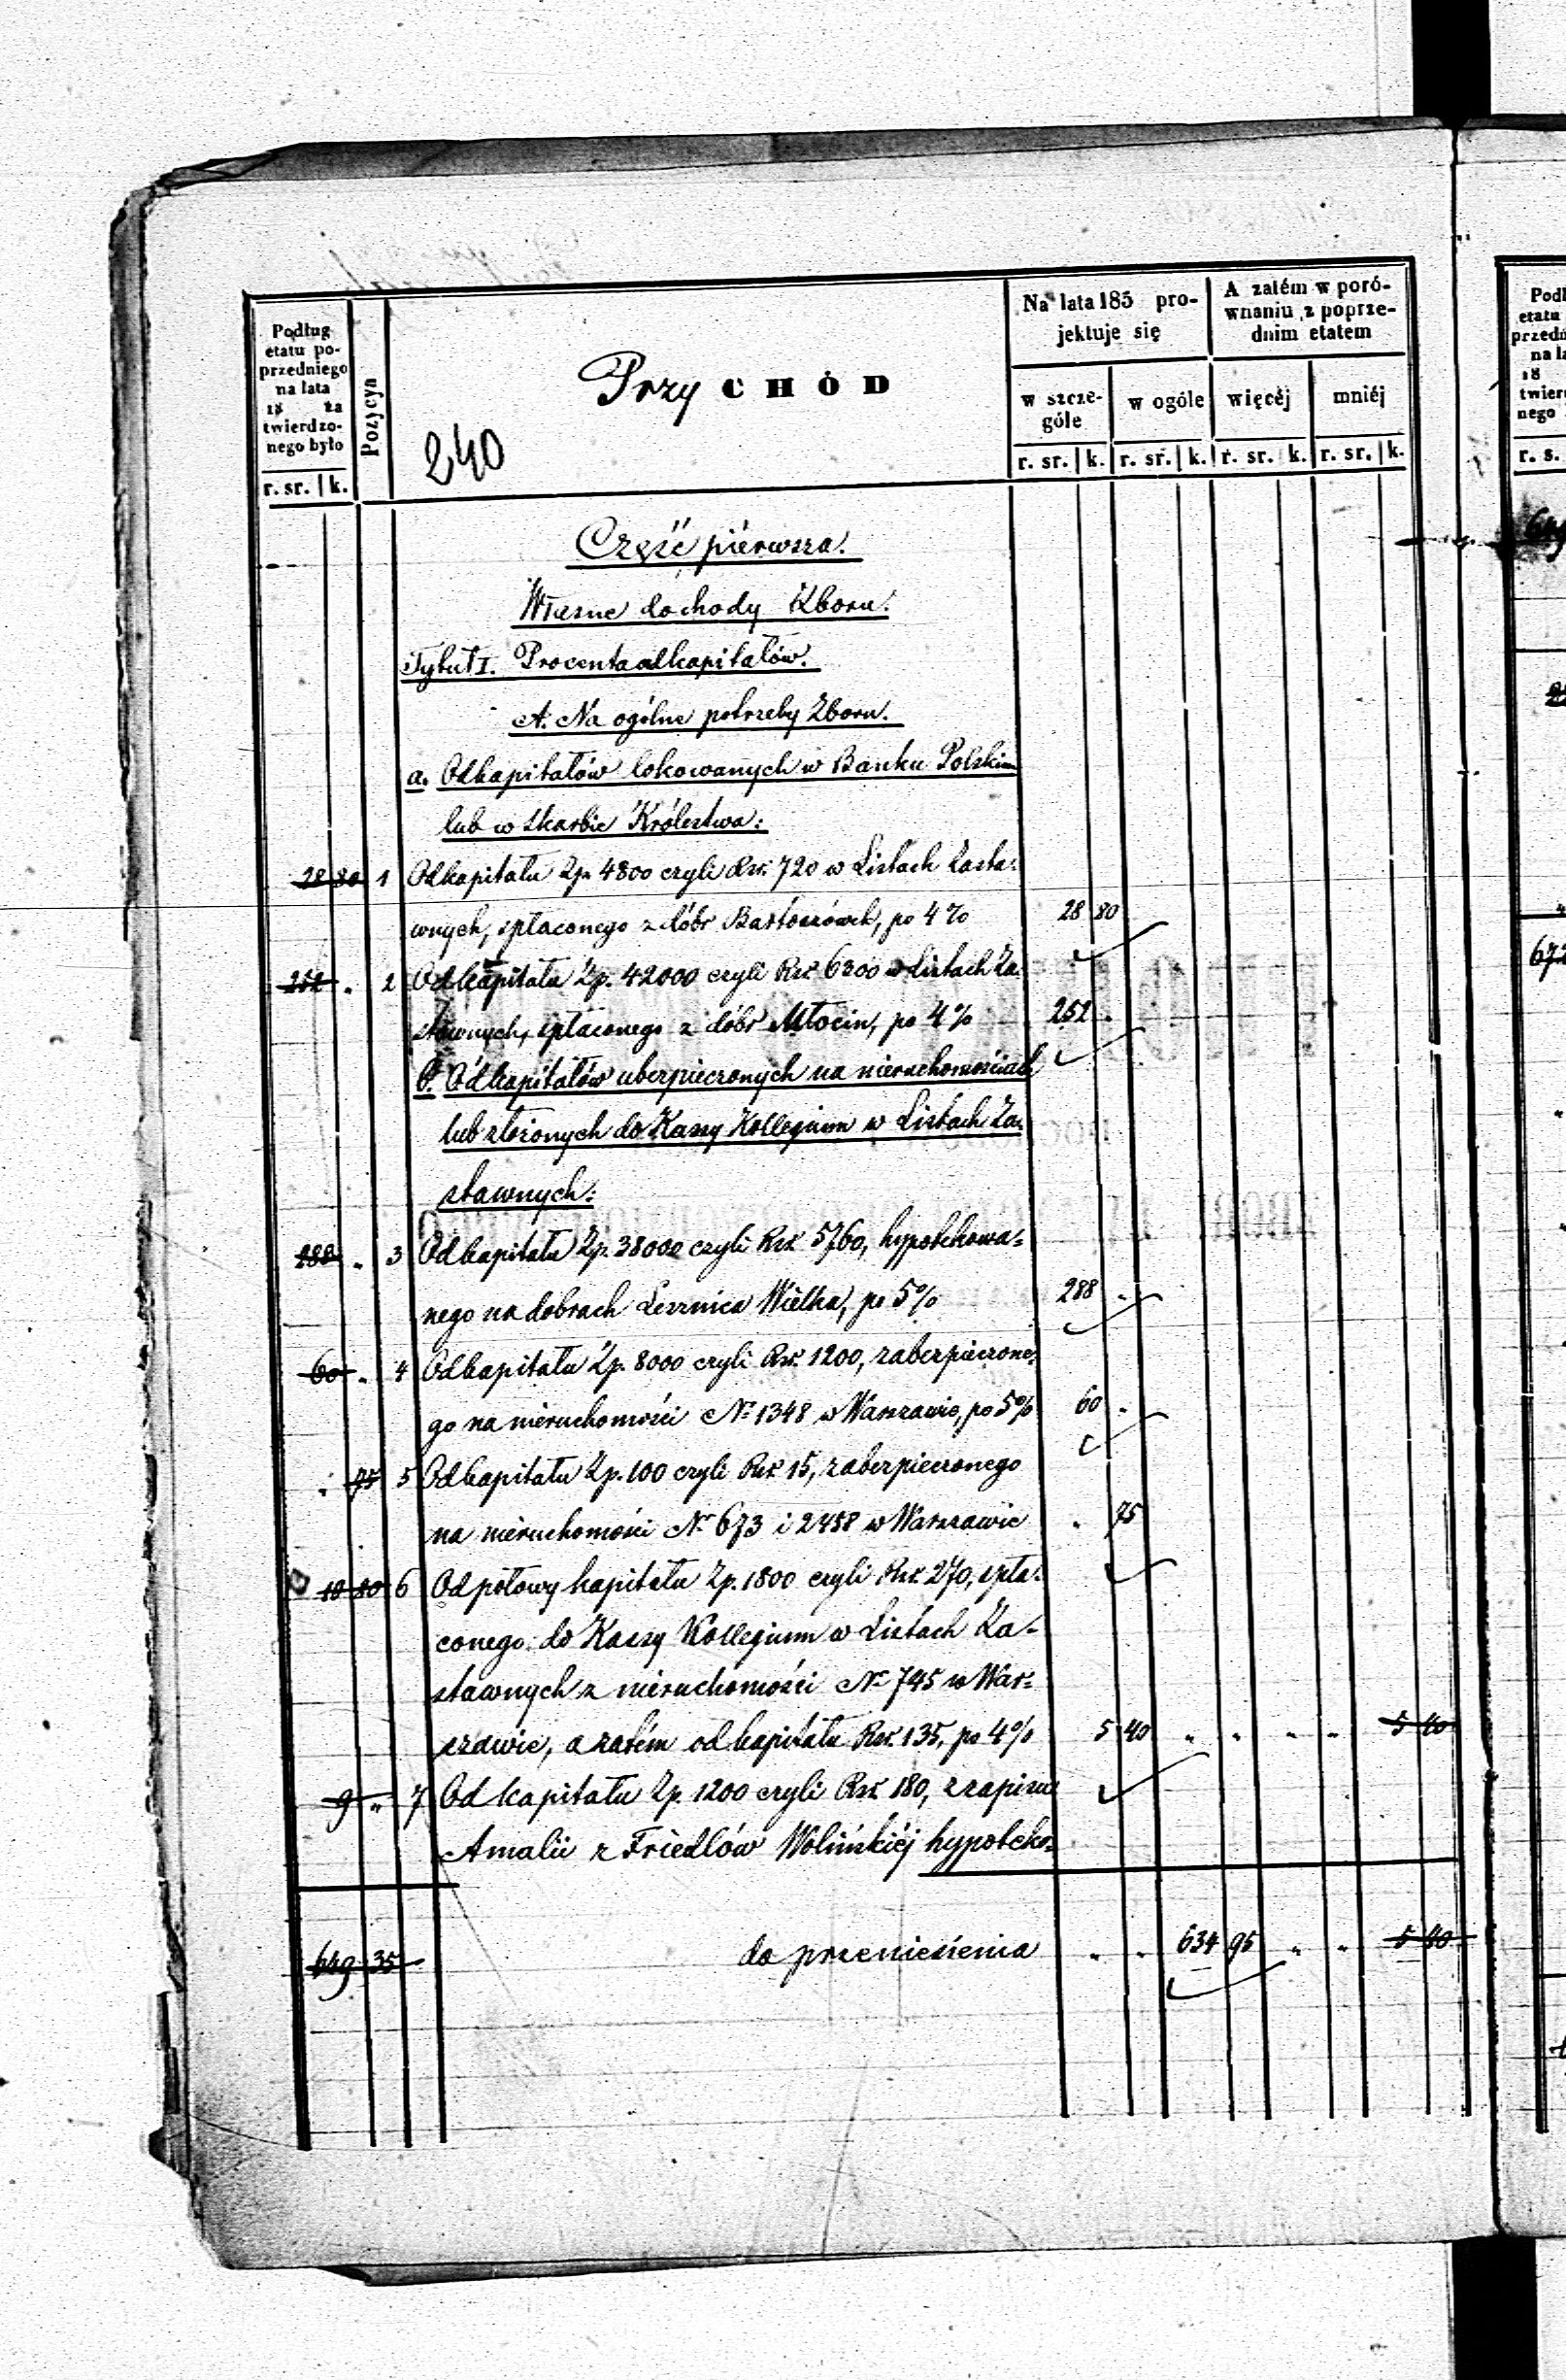 Podług
etatu po-
przedniego
na lata
18 za
twierdzo-
nego było
r. sr. k.
Pozycya
Przy CHÓD
240
Na lata 185 pro-
jektuje się
w szcze-
góle
w ogóle
r. sr. k. r. sr. k.
A zatém w poró-
wnaniu z poprze-
dnim etatem
więcéj
mniéj
r. sr. k. r. sr. k.
Część piérwsza.
Własne dochody Zboru.
Tytuł I. Procenta od kapitałów.
A. Na ogólne potrzeby Zboru.
a. Od kapitałów lokowanych w Banku Polskim
lub w Skarbie Królestwa:
28 80 1 Od kapitału Zp. 4800 czyli Rsr. 720 w Listach Zasta-
wnych, spłaconego z dóbr Bartoszówek, po 4% 28 80
252 " 2 Od kapitału Zp. 42000 czyli Rsr. 6300 w Listach Za-
stawnych, spłaconego z dóbr Młocin, po 4% 252 "
b. Od kapitałów ubezpieczonych na nieruchomościach
lub złożonych do Kassy Kollegium w Listach Za-
stawnych:
288 " 3 Od kapitału Zp. 38000 czyli Rsr. 5760, hypotekowa=
nego na dobrach Leśnica Wielka, po 5% 288 "
60 " 4 Od kapitału Zp. 8000 czyli Rsr. 1200, zabezpieczone-
go na nieruchomości No 1348 w Warszawie, po 5% 60 "
" 75 5 Od kapitału Zp. 100 czyli Rsr. 15, zabezpieczonego
na nieruchomości No 673 i 2488 w Warszawie " 75
10 80 6 Od połowy kapitału Zp. 1800 czyli Rsr. 270, spła-
conego do Kassy Kollegium w Listach Za-
stawnych z nieruchomości No 745 w War-
szawie, a zatém od kapitału Rsr. 135, po 4% 5 40 " " " " 5 40
9 " 7 Od kapitału Zp. 1200 czyli Rsr. 180, z zapisu
Amalii z Friedlów Wolińskiéj hypoteko=
649 35 do przeniesienia " " 634 95 " " 5 40
Podł
etatu
przedn
na la
18
twierd
nego
r. s.
649
672